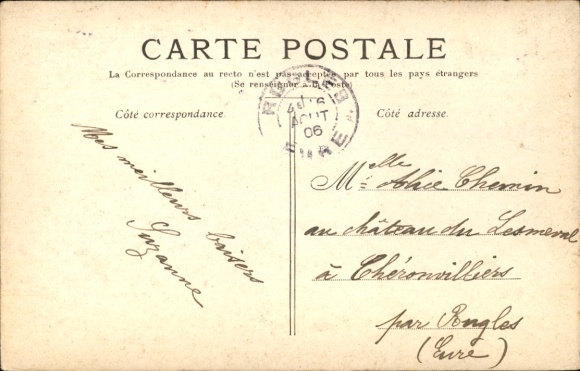 CARTE POSTALE
La Correspondance au recto n'est pas acceptée par tous les pays étrangers
(Se renseigner à la Poste)
Côté correspondance.
Côté adresse.
RUGLES
AOUT
06
EURE
Mes meilleurs baisers
Suzanne
Melle Alice Chemin
au château du Lesmeval
à Chéronvilliers
par Rugles
(Eure)